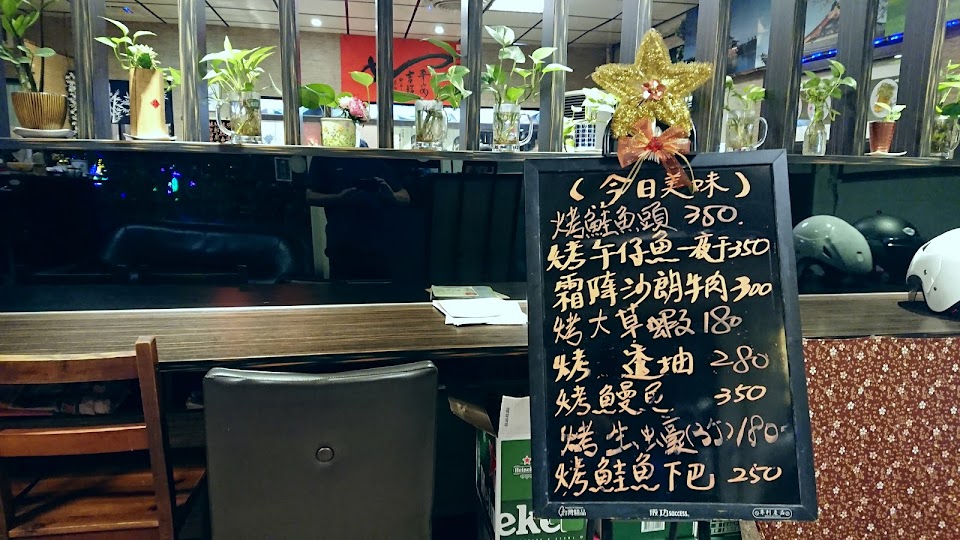 (今日美味)
烤鮭魚頭 380.
烤午仔魚一夜干350
霜降沙朗牛肉300
烤大草蝦 180
烤 透抽 280
烤鰻魚 350
烤生蠔(3顆)180
烤鮭魚下巴 250
成功 SUCCESS.
Heineken